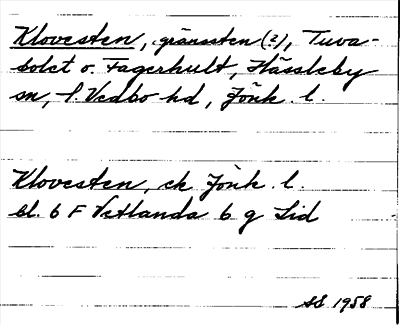 Klovesten, gränssten (?), Tuva-
bolet o. Fagerhult, Hässleby
sn, S. Vedbo hd, Jönk. l.
Klovesten, ek Jönk. l.
bl. 6 F Vetlanda 6 g Sid
SS 1958